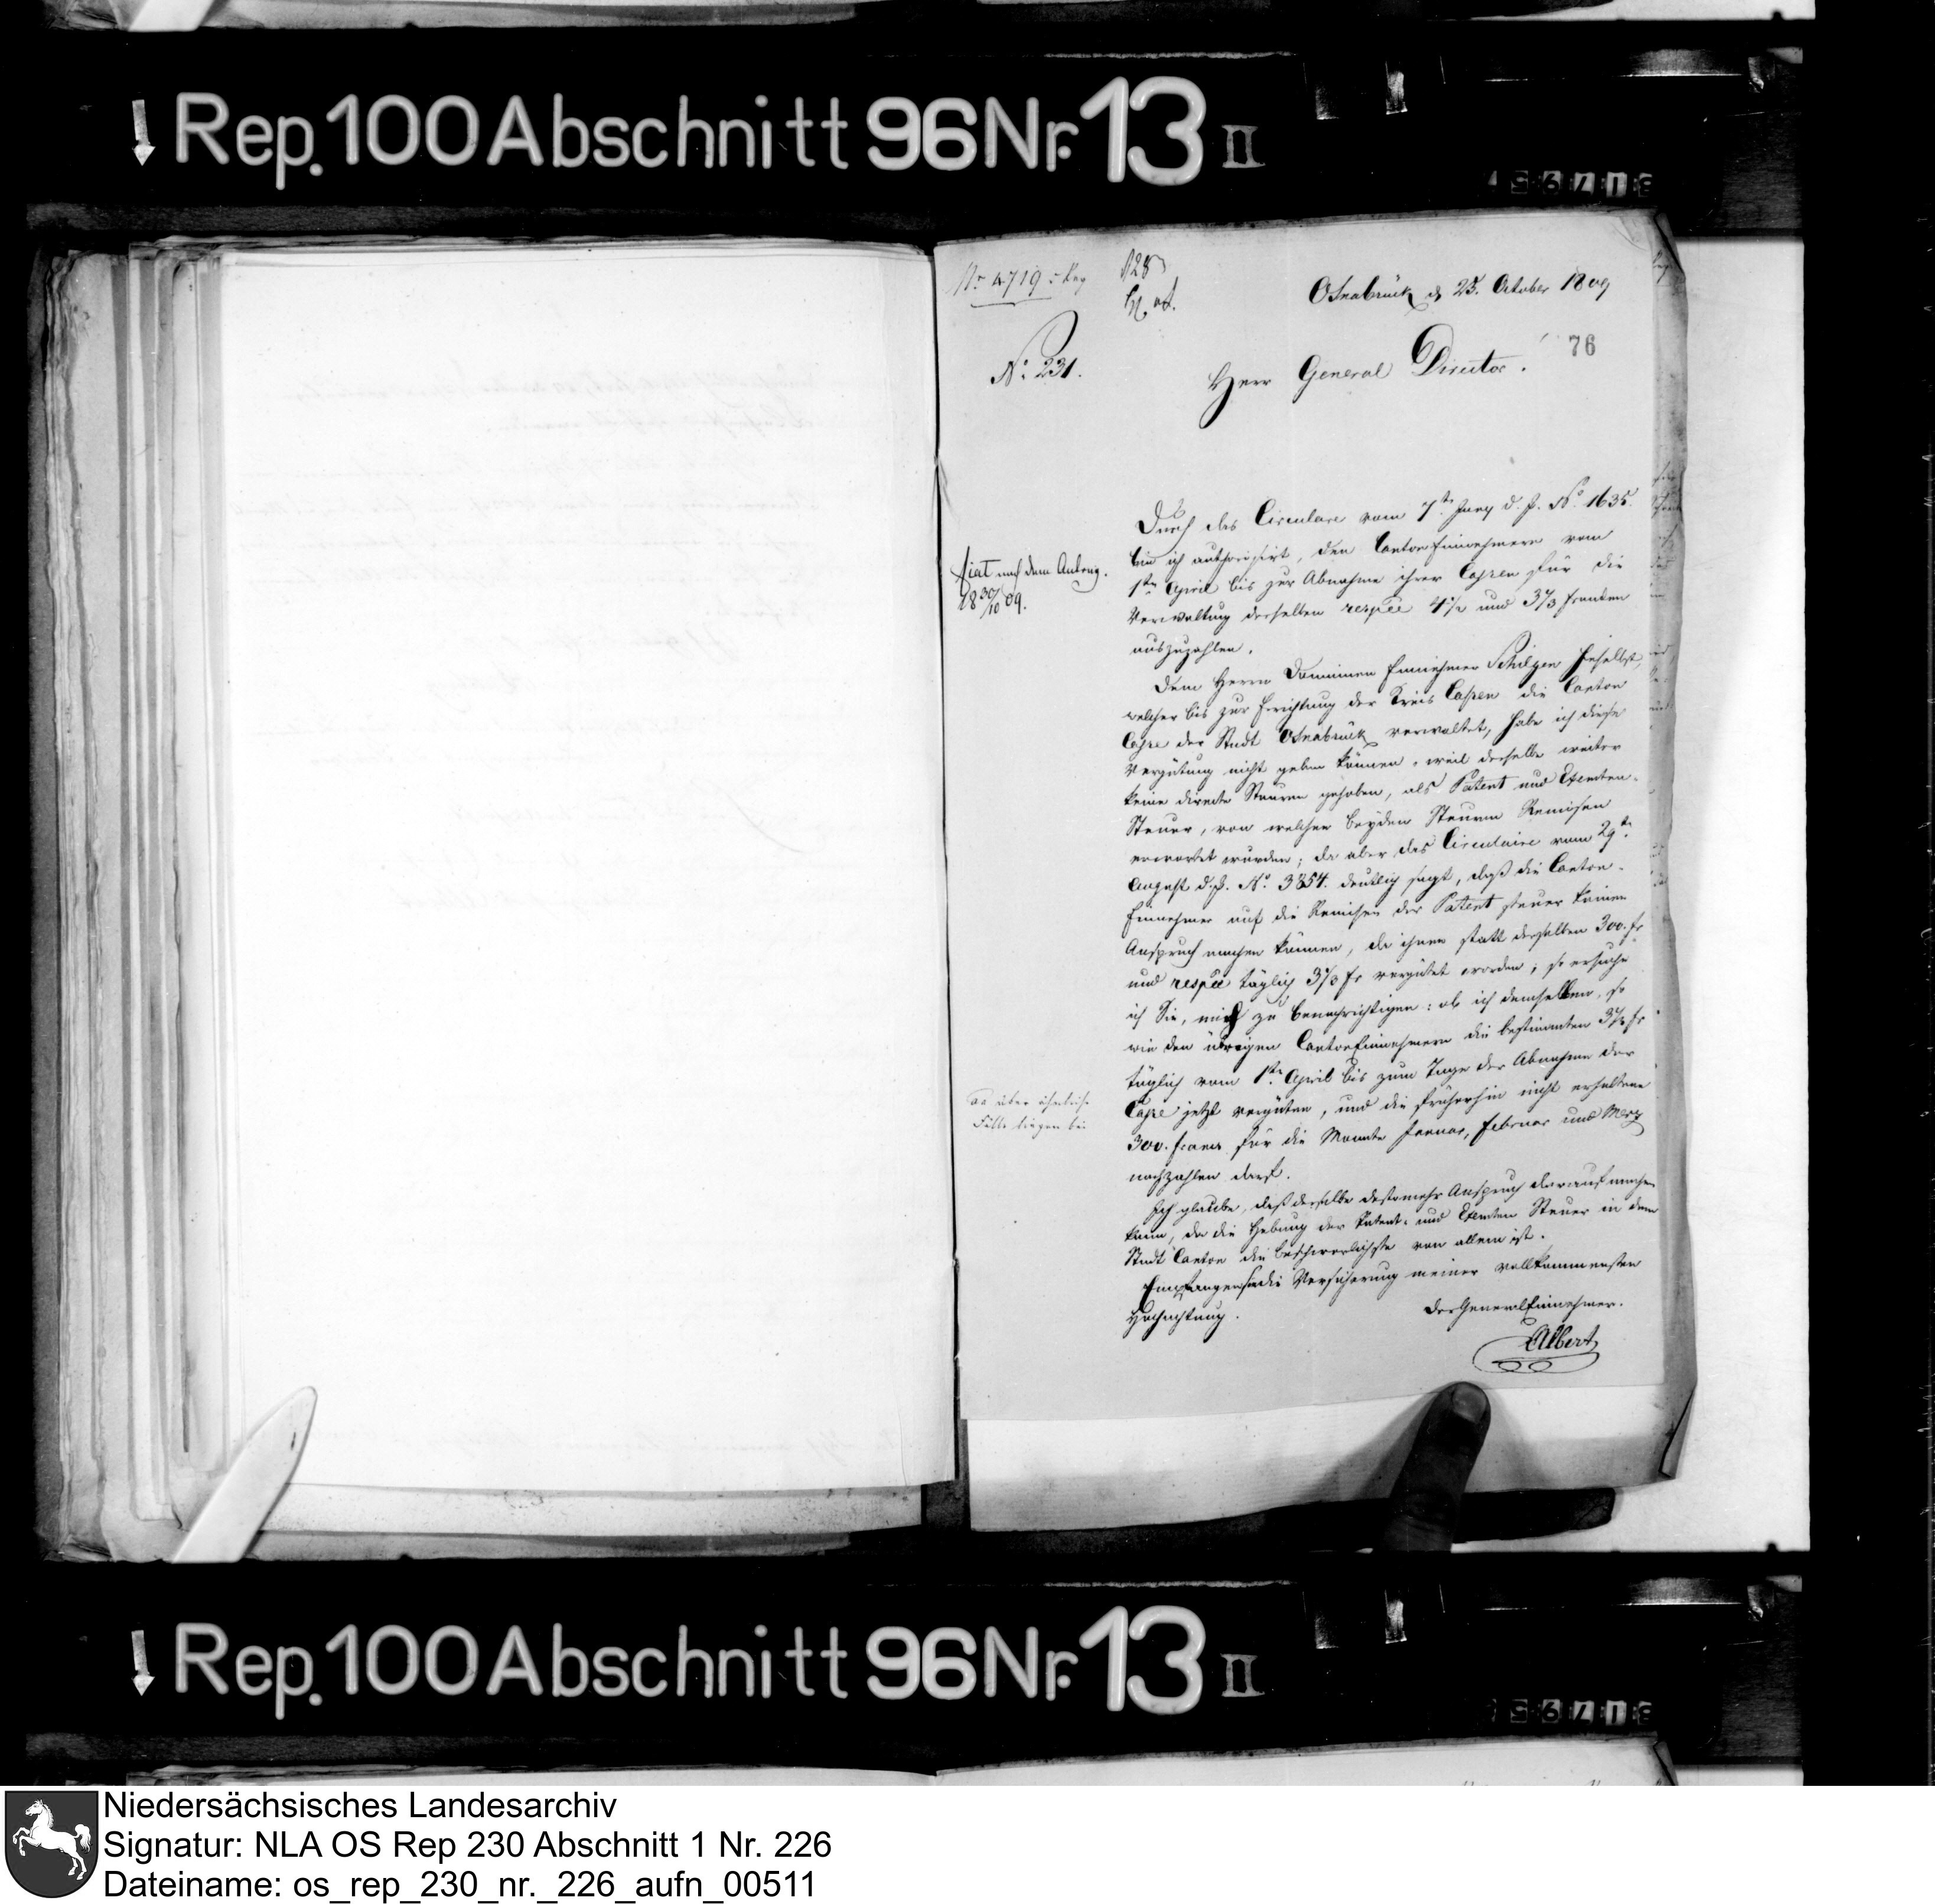 Rep. 100 Abschnitt 96 Nr. 13 II
No 4719
Osnabrück d 25. October 1809
76
No. 231.
Herr General Director.
Durch das Circulare vom 7ten Juny d. J. No. 1635.
bin ich authorisirt, den CantonEinnehmern vom
fiat nach dem Antrag.
18 30/10 09.
1ten April bis zur Abnahme ihrer Cassen für die
Verwaltung derselben respee 4 1/2 und 3 1/3 Franken
auszuzahlen.
Dem Herrn Domainen Einnehmer Schilgen hieselbst,
welcher bis zur Errichtung der Kreis Cassen die Canton
Casse der Stadt Osnabrück verwaltet, habe ich diese
Vergütung nicht geben können, weil derselbe weiter
keine directe Steuern gehoben, als Patent und Exemten-
Steuer, von welchen beyden Steuern Remisen
erwartet wurden; da aber das Circulaire vom 29ten
August d. J. No. 3854. deutlich sagt, daß die Canton-
Einnehmer auf die Remisen der Patent steuer keinen
Anspruch machen können, da ihnen statt derselben 300. fr
und respee täglich 3 1/3 fr vergütet worden; so ersuche
ich Sie, mich zu benachrichtigen: ob ich demselben, so
wie den übrigen CantonEinnehmern die bestimmten 3 1/3 fr
täglich vom 1ten April bis zum Tage der Abnahme der
Casse jetzt vergüten, und die früherhin nicht erhaltene
aa über ähnliche
Fälle liegen bei
300. francs für die Monate Januar, Februar und Merz
nachzahlen darf.
Ich glaube, daß derselbe destomehr Anspruch darauf machen
kann, da die Hebung der Patent- und Exemten Steuer in dem
Stadt Canton die beschwerlichste von allen ist.
Empfangen Sie die Versicherung meiner vollkommensten
Hochachtung.
Der General Einnehmer.
Albert
Rep. 100 Abschnitt 96 Nr. 13 II
Niedersächsisches Landesarchiv
Signatur: NLA OS Rep 230 Abschnitt 1 Nr. 226
Dateiname: os_rep_230_nr._226_aufn_00511